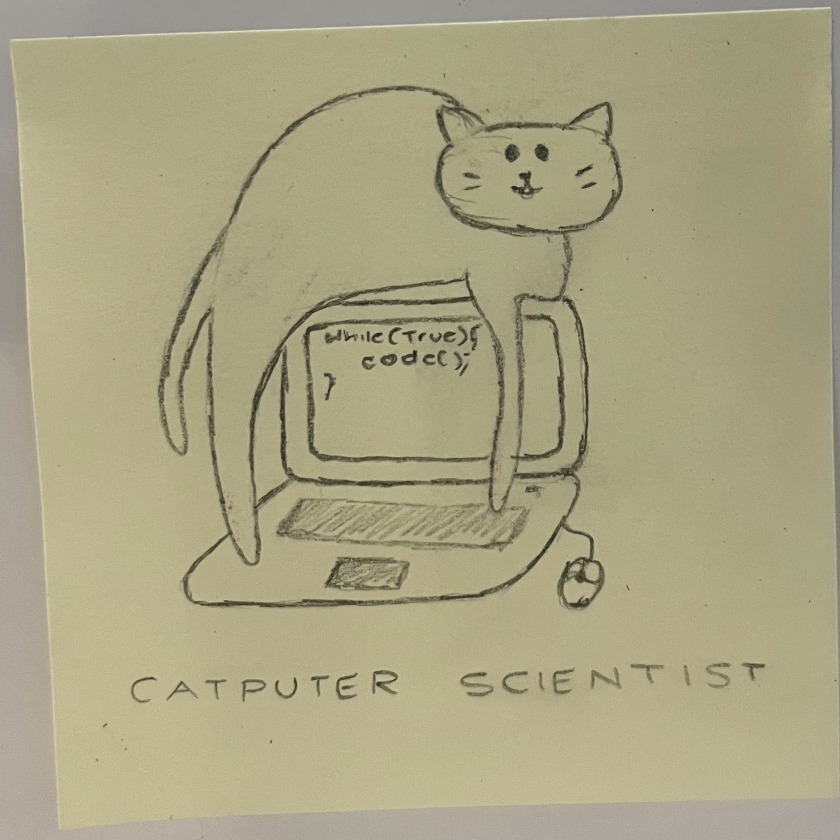 while(True){
code();
}
CATPUTER SCIENTIST